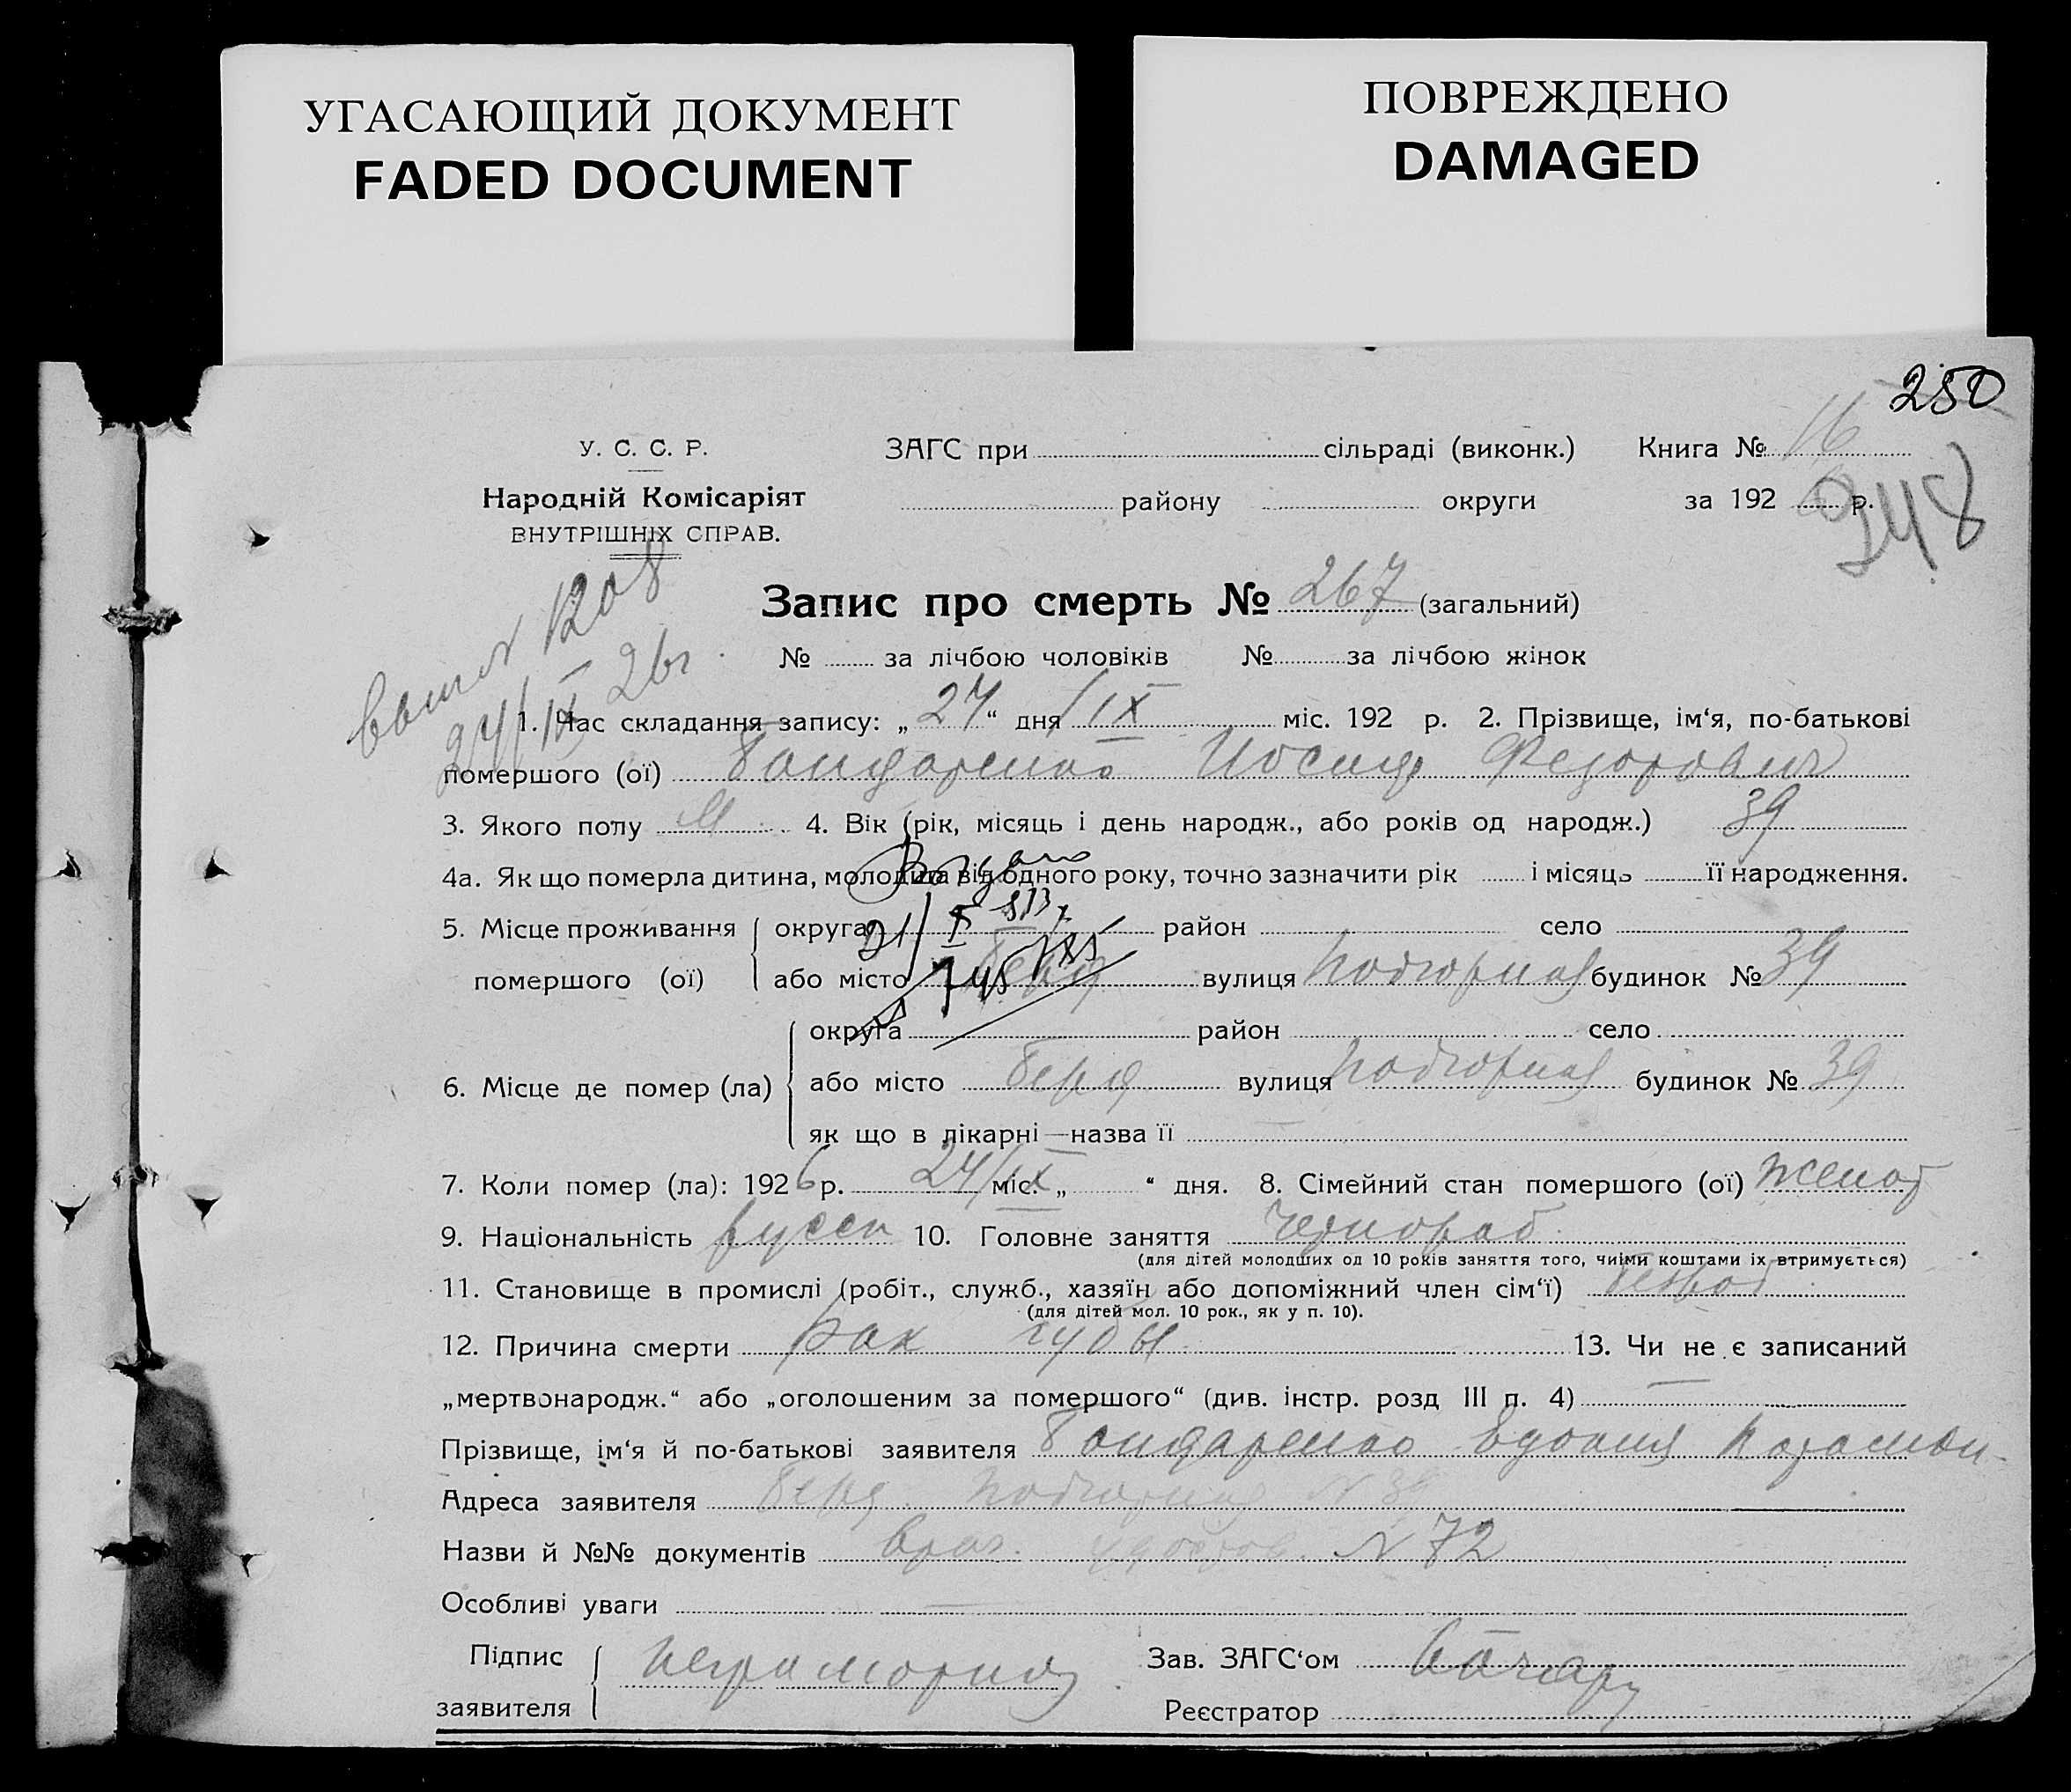 УГАСАЮЩИЙ ДОКУМЕНТ
FADED DOCUMENT
ПОВРЕЖДЕНО
DAMAGED
250
У. С. С. Р.
ЗАГС при сільраді (виконк.) Книга № 16
Народній Комісаріят
району округи за 192 6 р.
ВНУТРІШНІХ СПРАВ.
248
1208
24/IX 26г
Запис про смерть № 267 (загальний)
№ за лічбою чоловіків № за лічбою жінок
1. Час складання запису: „24“ дня IX міс. 192 р. 2. Прізвище, ім‘я, по-батькові
помершого (ої) Бондаренко Иосиф Федорович
3. Якого полу М 4. Вік (рік, місяць і день народж., або років од народж.) 39
4а. Як що померла дитина, молодша від одного року, точно зазначити рік і місяць її народження.
5. Місце проживання округа район село
помершого (ої) або місто вулиця Подгорная будинок № 39
округа район село
6. Місце де помер (ла) або місто Берд вулиця Подгорная будинок № 39
як що в лікарні—назва її —
7. Коли помер (ла): 1926 р. 24/IX міс. „ “ дня. 8. Сімейний стан помершого (ої) женат
9. Національність русск 10. Головне заняття чернораб.
(для дітей молодших од 10 років заняття того, чиїми коштами їх втримується)
11. Становище в промислі (робіт., служб., хазяїн або допоміжний член сім‘ї) безраб
(для дітей мол. 10 рок., як у п. 10).
12. Причина смерти рак губы 13. Чи не є записаний
„мертвонародж.“ або „оголошеним за помершого“ (див. інстр. розд III п. 4) —
Прізвище, ім‘я й по-батькові заявителя Бондаренко
Адреса заявителя Берд Подгорная № 39
Назви й №№ документів врач. удостов. № 72
Особливі уваги —
Підпис неграмотная Зав. ЗАГС‘ом
заявителя Реєстратор